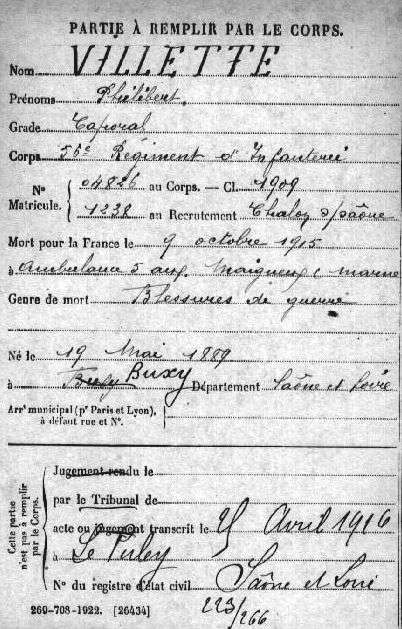 PARTIE À REMPLIR PAR LE CORPS.
Nom VILLETTE
Prénoms Philibert
Grade Caporal
Corps 56e Régiment d'Infanterie
No 04826 au Corps. — Cl. 1909
Matricule. 1238 au Recrutement Chalon s/saône
Mort pour la France le 9 octobre 1915
à Ambulance 5 aux. Maigneux (marne
Genre de mort Blessures de guerre
Né le 19 Mai 1889
à Buxy Département Saône et Loire
Arrt municipal (pr Paris et Lyon),
à défaut rue et No.
Cette partie
n'est pas à remplir
par le Corps.
Jugement rendu le
par le Tribunal de
acte ou jugement transcrit le 5 Avril 1916
à Le Puley
No du registre d'état civil Saône et Loire
223/266
269-708-1922. [26434]